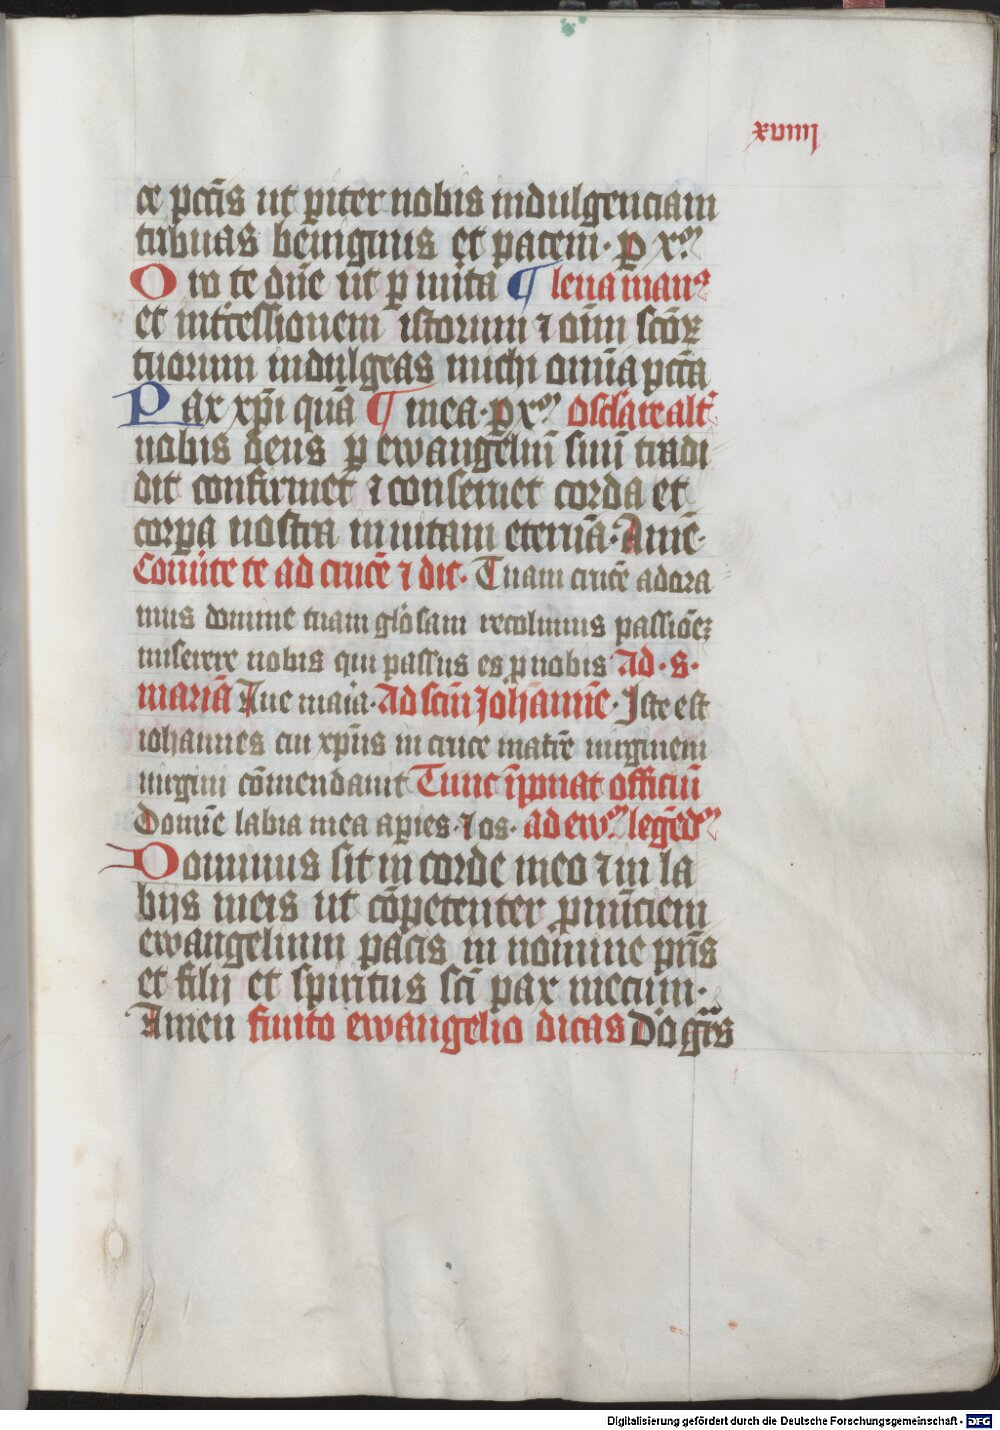 xviiij
ce pctis̄ ut p̄iter nobis indulgenciam
tribuas benignus et pacem · p xm̄
Oro te dn̄e ut p merita ¶ leua manꝰ
et int̄cessionem istorum ⁊ oīm sc̄oꝝ
tuorum indulgeas michi omīa pct̄a
Pax xp̄i quā ¶ mea · p xm̄ oscl̄are alt̄
nobis deus p ewangeliū suū tradi
dit confirmet ⁊ conseruet corda et
corꝑa nostra in uitam eternā · Amē ·
Conūte te ad crucē ⁊ dic · Tuam crucē adora
mus domine tuam gl̄osam recolimus passiōeꝫ
miserere nobis qui passus es p nobis Ad · s ·
mariā Aue maīa · Ad sc̄m Johannē · Iste est
iohannes cui xp̄us in cruce matrē uirginem
uirgini cōmendauit Tunc īponat officiū
Domīe labia mea aꝑies · ⁊ os · ad ew̄ legēd̄
Dominus sit in corde meo ⁊ in la
bijs meis ut cōpetenter pnūciem
ewangelium pacis in nomine pr̄is
et filij et spiritus sc̄i pax mecum ·
Amen finito ewangelio dicas Dō gr̄s
Digitalisierung gefördert durch die Deutsche Forschungsgemeinschaft - DFG